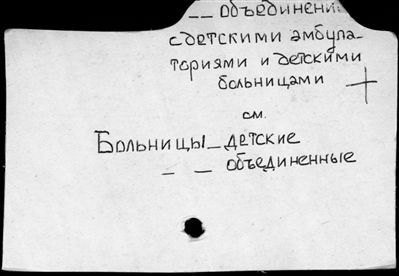 _ _ объединени
с детскими амбула-
ториями и детскими
больницами +
см.
Больницы_детские
_ _ объединенные